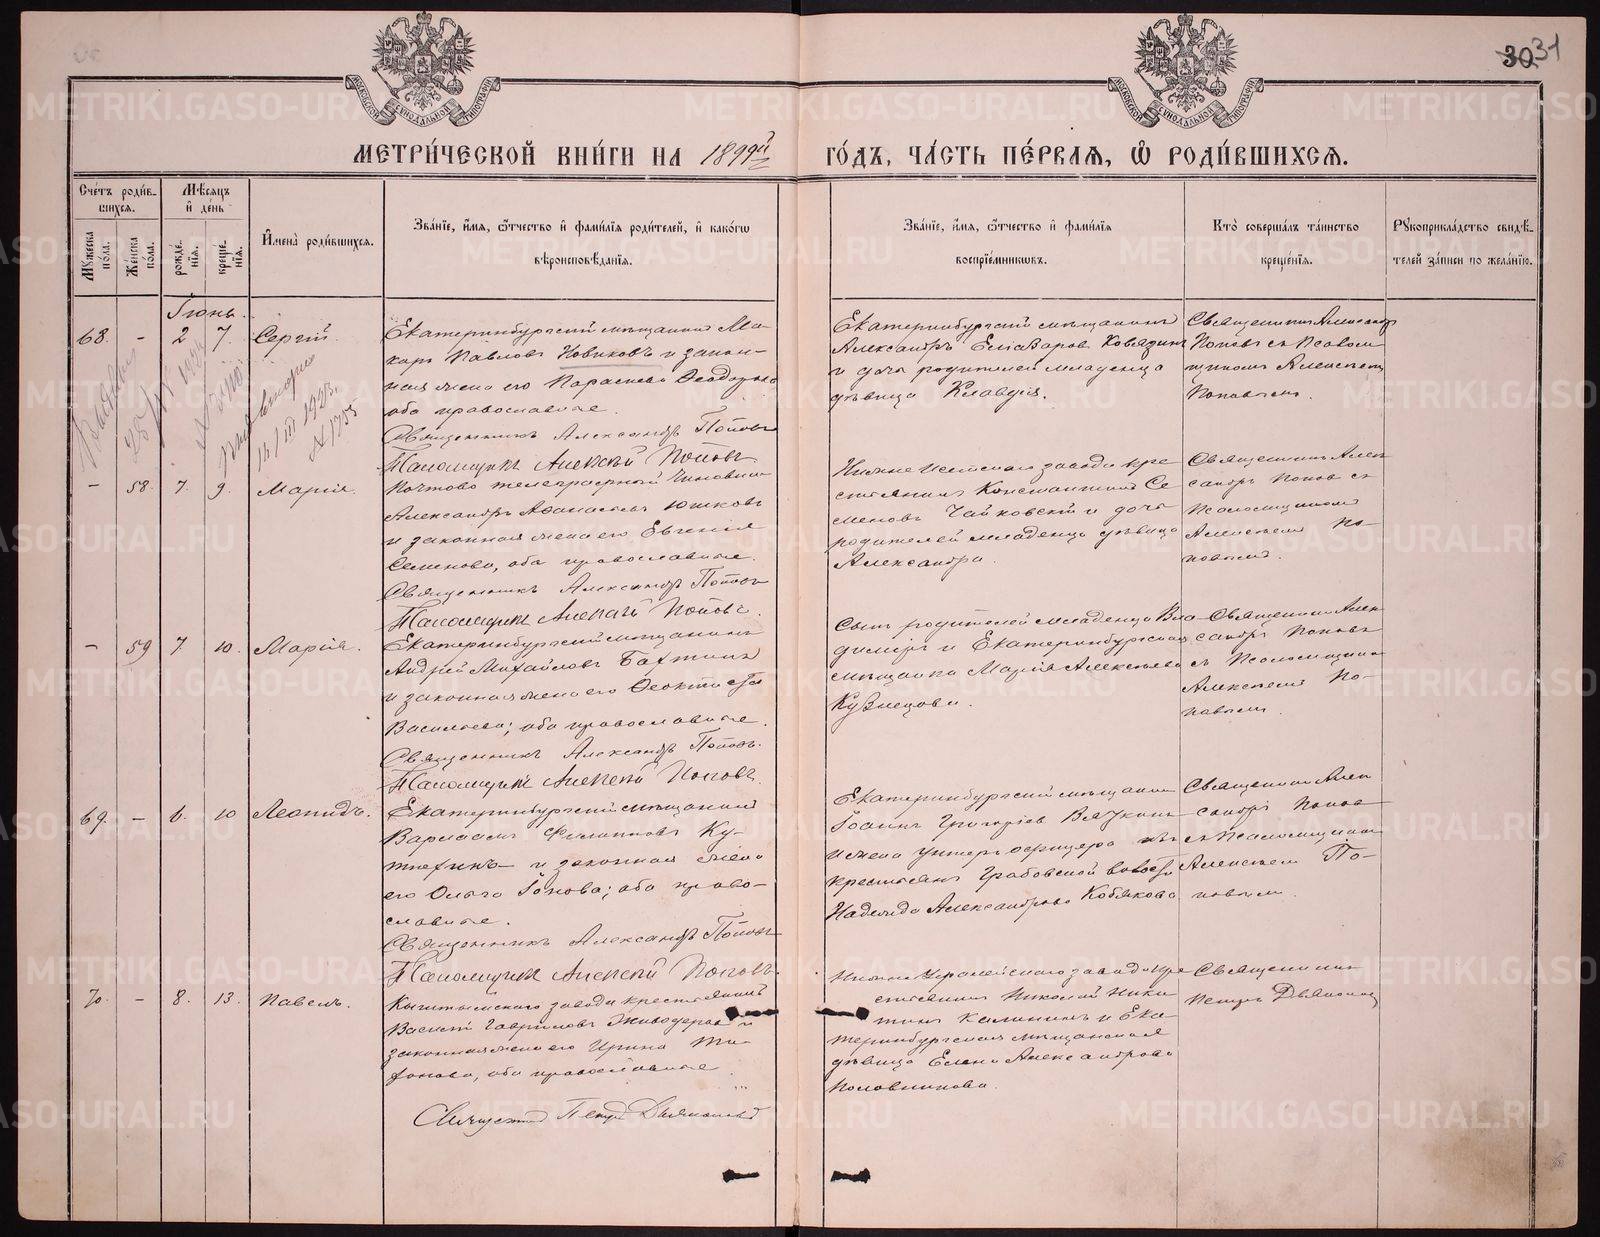 30 31
МОСКОВСКОЙ СѴНОДАЛЬНОЙ ТИПОГРАФІИ
МОСКОВСКОЙ СѴНОДАЛЬНОЙ ТИПОГРАФІИ
МЕТРИ́ЧЕСКОЙ КНИ́ГИ НА 1899й ГО́ДЪ, ЧА́СТЬ ПЕ́РВАЯ, Ѡ РОДИ́ВШИХСЯ.
Сче́тъ роди́вшихся.
Му́жеска по́ла.
Же́нска по́ла.
Мѣ́сяцъ и де́нь
рожде́нія.
креще́нія.
И҆мена̀ роди́вшихся.
Зва́ніе, и҆́мя, ѻ҆́тчество и҆ фами́лія роди́телей, и҆ како́гѡ вѣроисповѣ́данія.
Зва́ніе, и҆́мя, ѻ҆́тчество и҆ фами́лія воспріе́мникѡвъ.
Кто̀ соверша́лъ та́инство креще́нія.
Рꙋкоприкла́дство свидѣ́телей за́писи по жела́нію.
Іюнь.
68. - 2 7. Сергій
Екатеринбургскій мѣщанинъ Ма-
каръ Павловъ Новиковъ и закон-
ная жена его Параскева Ѳеодорова
оба православные.
Священникъ Александръ Поповъ
Псаломщикъ Алексѣй Поповъ
Екатеринбургскій мѣщанинъ
Александръ Елеазаровъ Ковязинъ
и дочь родителей младенца
дѣвица Клавдія.
Священникъ Александръ
Поповъ съ Псалом-
щикомъ Алексѣемъ
Поповымъ.
14/III 1923.
№ 1755
- 58. 7. 9. Марія.
Почтово телеграфный Чиновникъ
Александръ Аѳанасьевъ Юшковъ
и законная жена его Евгенія
Семенова, оба православные.
Священникъ Александръ Поповъ
Псаломщикъ Алексѣй Поповъ.
Нижне Исетскаго завода кре-
стьянинъ Константинъ Се-
меновъ Чайковскій и дочь
родителей младенца дѣвица
Александра.
Священникъ Алек-
сандръ Поповъ съ
Псаломщикомъ
Алексѣемъ По-
повымъ.
- 59 7. 10. Марія.
Екатеринбургскій мѣщанинъ
Андрей Михайловъ Бахтинъ
и законная жена его Ѳеоктиста
Васильева; оба православные.
Священникъ Александръ Поповъ.
Псаломщикъ Алексѣй Поповъ.
Сынъ родителей младенца Вла-
димиръ и Екатеринбургская
мѣщанка Марія Алексѣева
Кузнецова.
Священникъ Алек-
сандръ Поповъ
съ Псаломщикомъ
Алексѣемъ По-
повымъ.
69. - 6. 10 Леонидъ.
Екатеринбургскій мѣщанинъ
Варлаамъ Филипповъ Ку-
тюхинъ и законная жена
его Ольга Іонова; оба право-
славные.
Священникъ Александръ Поповъ
Псаломщикъ Алексѣй Поповъ.
Екатеринбургскій мѣщанинъ
Іоаннъ Григорьевъ Вяткинъ
и жена унтеръ офицера изъ
крестьянъ Грабовской волости
Надежда Александрова Кобякова
Священникъ Алек-
сандръ Поповъ
съ Псаломщикомъ
Алексѣемъ По-
повымъ.
70. - 8. 13. Павелъ.
Кыштымскаго завода крестьянинъ
Василій Гавриловъ Живодеровъ и
законная жена его Ирина Ти-
фонова, оба православные.
Священникъ Петръ Дьяконовъ
стьянинъ Николай Ники-
тинъ Калининъ и Ека-
теринбургская мѣщанская
дѣвица Елена Александрова
Половникова.
Священникъ
Петръ Дьяконовъ
METRIKI.GASO-URAL.RU